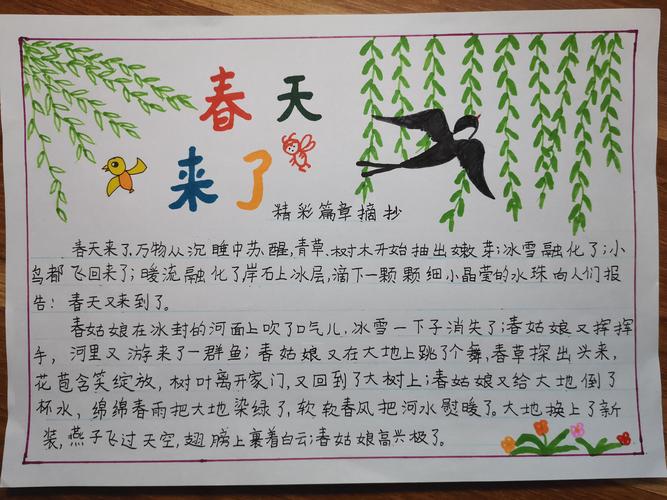 春天
来了
精彩篇章摘抄
春天来了,万物从沉睡中苏醒,青草、树木开始抽出嫩芽;冰雪融化了;小
鸟都飞回来了;暖流融化了岸石上冰层,滴下一颗颗细小晶莹的水珠向人们报
告:春天又来到了。
春姑娘在冰封的河面上吹了口气儿,冰雪一下子消失了;春姑娘又挥挥
手,河里又游来了一群鱼;春姑娘又在大地上跳了个舞,春草探出头来,
花苞含笑绽放,树叶离开家门,又回到了大树上;春姑娘又给大地倒了
杯水,绵绵春雨把大地染绿了,软软春风把河水熨暖了。大地换上了新
装,燕子飞过天空,翅膀上裹着白云;春姑娘高兴极了。